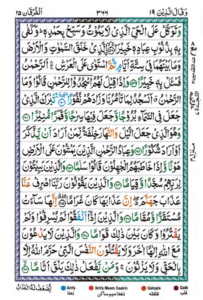 وَقَالَ الَّذِیْنَ ١٩ ٣٦٦ اَلْفُرْقَان ٢٥
وَتَوَكَّلْ عَلَى الْحَيِّ الَّذِيْ لَا يَمُوْتُ وَسَبِّحْ بِحَمْدِهٖ ؕ وَكَفٰى
بِهٖ بِذُنُوْبِ عِبَادِهٖ خَبِيْرًا ۙ الَّذِيْ خَلَقَ السَّمٰوٰتِ وَالْاَرْضَ
وَمَا بَيْنَهُمَا فِيْ سِتَّةِ اَيَّامٍ ثُمَّ اسْتَوٰى عَلَى الْعَرْشِ ۚ اَلرَّحْمٰنُ
فَسْـَٔلْ بِهٖ خَبِيْرًا وَاِذَا قِيْلَ لَهُمُ اسْجُدُوْا لِلرَّحْمٰنِ قَالُوْا وَمَا
الرَّحْمٰنُ ۗ اَنَسْجُدُ لِمَا تَاْمُرُنَا وَزَادَهُمْ نُفُوْرًا تَبٰرَكَ الَّذِيْ
جَعَلَ فِي السَّمَآءِ بُرُوْجًا وَّجَعَلَ فِيْهَا سِرٰجًا وَّقَمَرًا مُّنِيْرًا
وَهُوَ الَّذِيْ جَعَلَ الَّيْلَ وَالنَّهَارَ خِلْفَةً لِّمَنْ اَرَادَ اَنْ يَّذَّكَّرَ
اَوْ اَرَادَ شُكُوْرًا وَعِبَادُ الرَّحْمٰنِ الَّذِيْنَ يَمْشُوْنَ عَلَى الْاَرْضِ
هَوْنًا وَّاِذَا خَاطَبَهُمُ الْجٰهِلُوْنَ قَالُوْا سَلٰمًا وَالَّذِيْنَ يَبِيْتُوْنَ
لِرَبِّهِمْ سُجَّدًا وَّقِيَامًا وَالَّذِيْنَ يَقُوْلُوْنَ رَبَّنَا اصْرِفْ عَنَّا
عَذَابَ جَهَنَّمَ ۖ اِنَّ عَذَابَهَا كَانَ غَرَامًا اِنَّهَا سَآءَتْ
مُسْتَقَرًّا وَّمُقَامًا وَالَّذِيْنَ اِذَآ اَنْفَقُوْا لَمْ يُسْرِفُوْا وَلَمْ
يَقْتُرُوْا وَكَانَ بَيْنَ ذٰلِكَ قَوَامًا وَالَّذِيْنَ لَا يَدْعُوْنَ
مَعَ اللّٰهِ اِلٰهًا اٰخَرَ وَلَا يَقْتُلُوْنَ النَّفْسَ الَّتِيْ حَرَّمَ اللّٰهُ اِلَّا
بِالْحَقِّ وَلَا يَزْنُوْنَ ۚ وَمَنْ يَّفْعَلْ ذٰلِكَ يَلْقَ اَثَامًا
Ikhfa Ikhfa Meem Saakin Qalqala Qalb